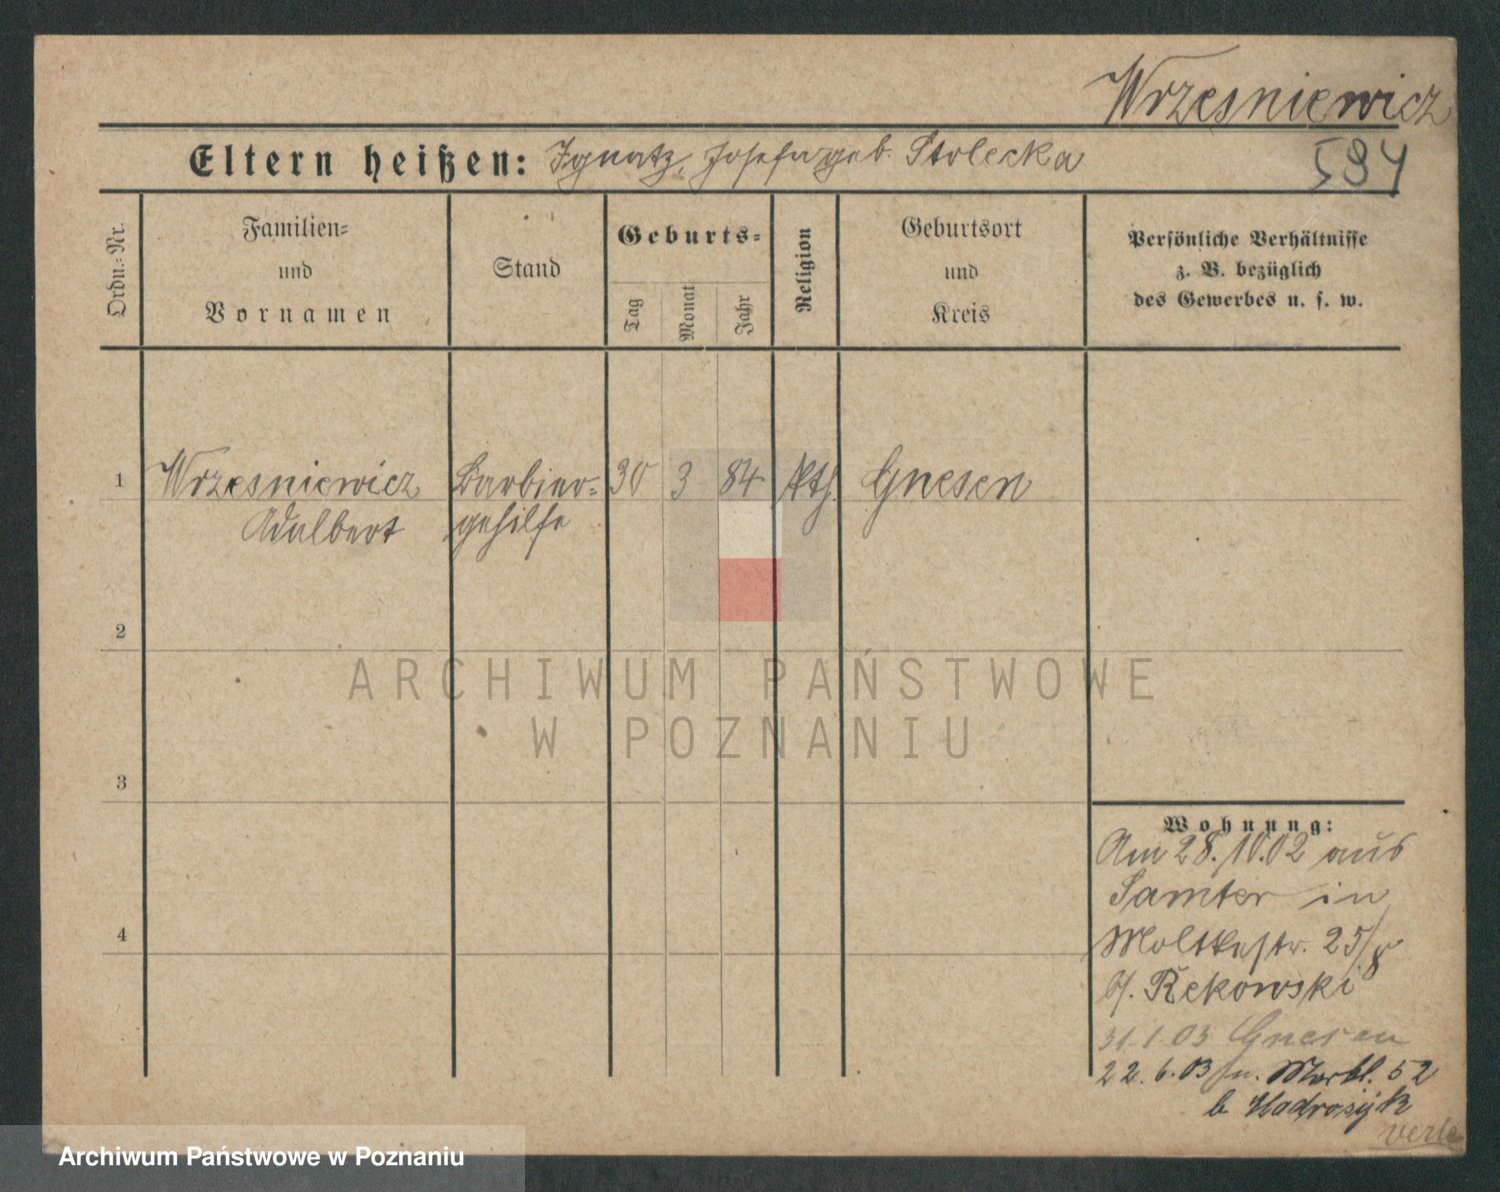 Wrzesniewicz
Eltern heißen: Ignatz, Josefa geb. Stolecka
594
Ordn.-Nr.
Familien-
und
Vornamen
Stand
Geburts-
Tag
Monat
Jahr
Religion
Geburtsort
und
Kreis
Persönliche Verhältnisse
z. B. bezüglich
des Gewerbes u. s. w.
1 Wrzesniewicz Barbier- 30 3 84 kth. Gnesen
Adalbert gehilfe
2
3
4
Wohnung:
Am 28./10.02 aus
Samter in
Moltkestr. 25/8
b/. Rekowski
31.1.03 Gnesen
22.6.03 n. 52
b
ARCHIWUM PAŃSTWOWE
W POZNANIU
Archiwum Państwowe w Poznaniu